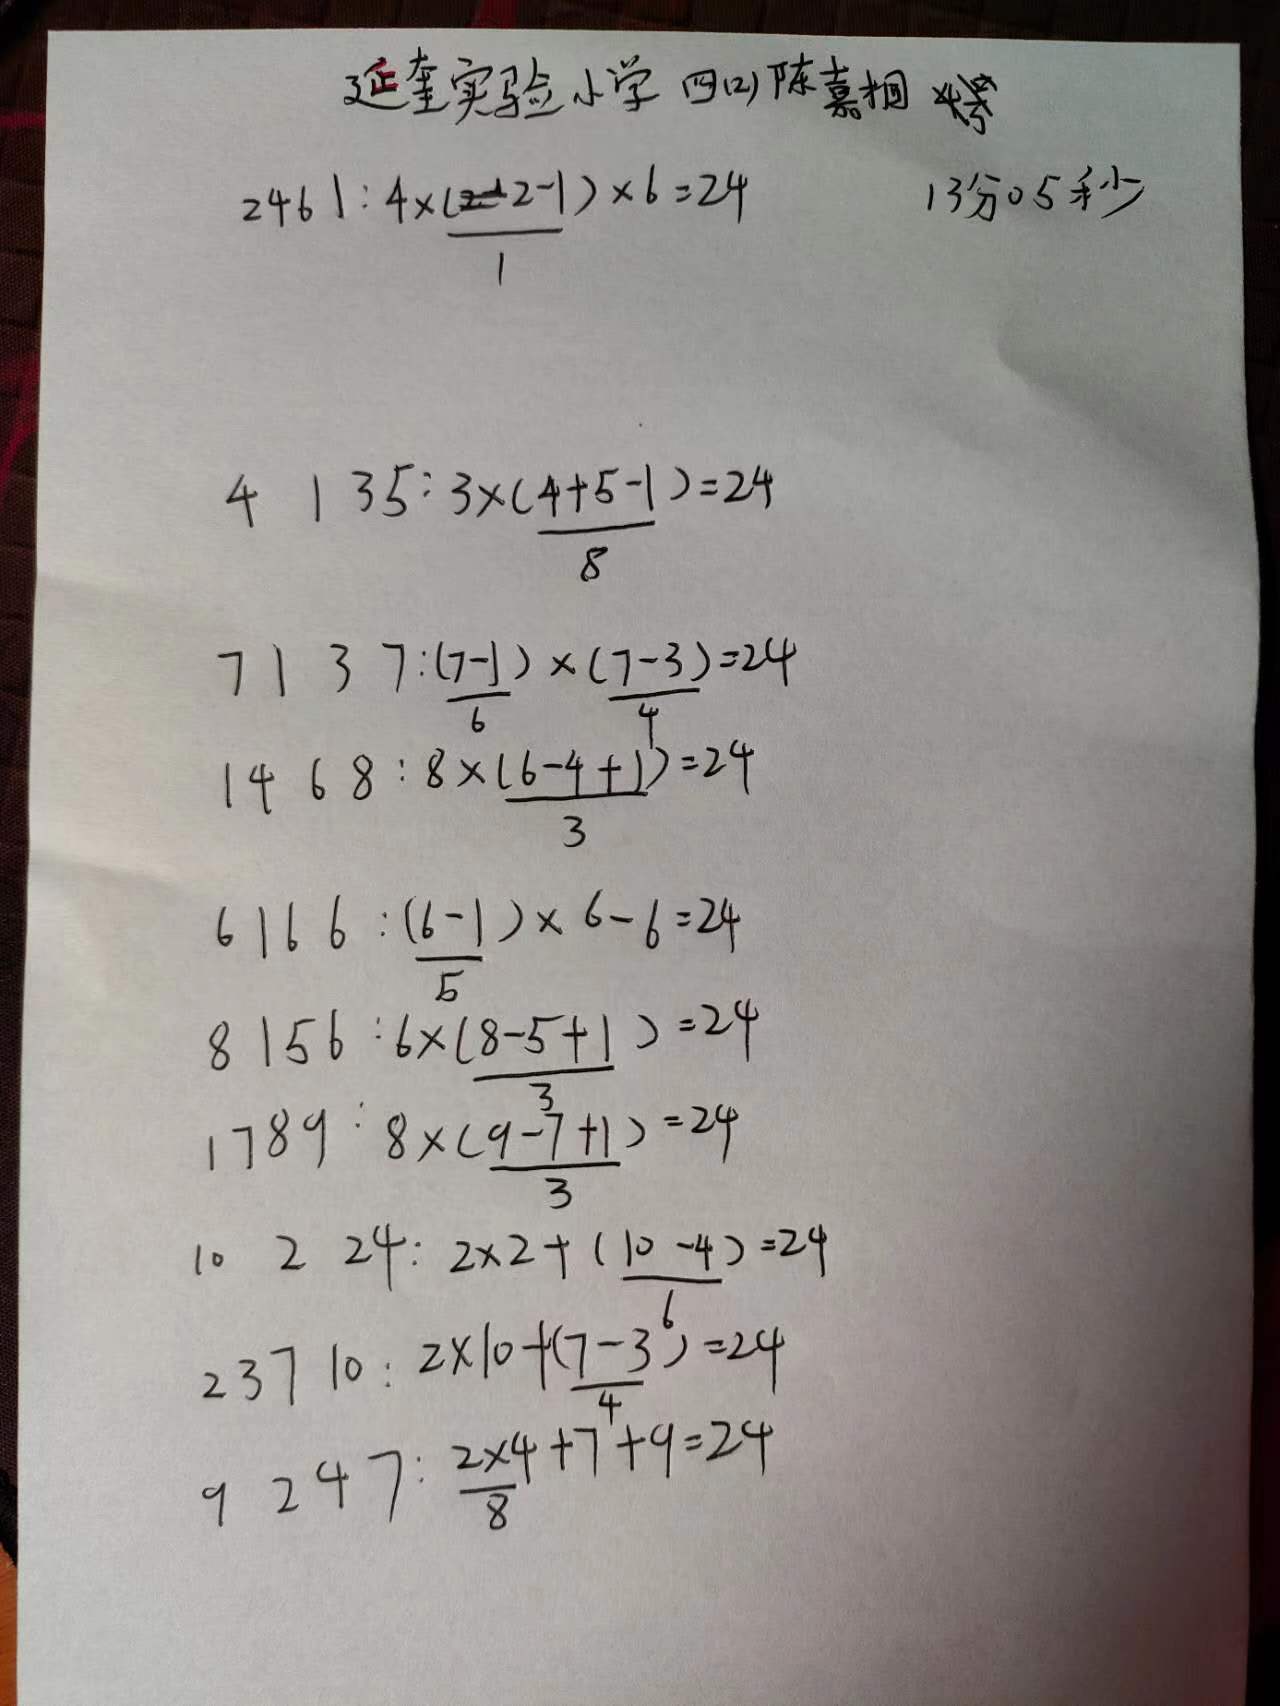 延奎实验小学 四(2)陈嘉桐
2461:4×(2-1)×6=24 13分05秒
1
4 1 35:3×(4+5-1)=24
8
7 1 3 7:(7-1)×(7-3)=24
6 4
14 6 8:8×(6-4+1)=24
3
616 6:(6-1)×6-6=24
5
8 156:6×(8-5+1)=24
3
1789:8×(9-7+1)=24
3
10 2 24:2×2+(10-4)=24
6
237 10:2×10+(7-3)=24
4
9 2 4 7:2×4+7+9=24
8